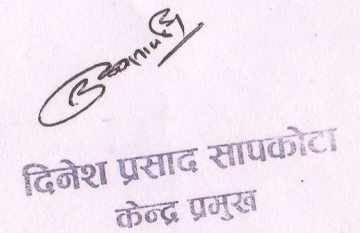 दिनेश प्रसाद सापकोटा
केन्द्र प्रमुख